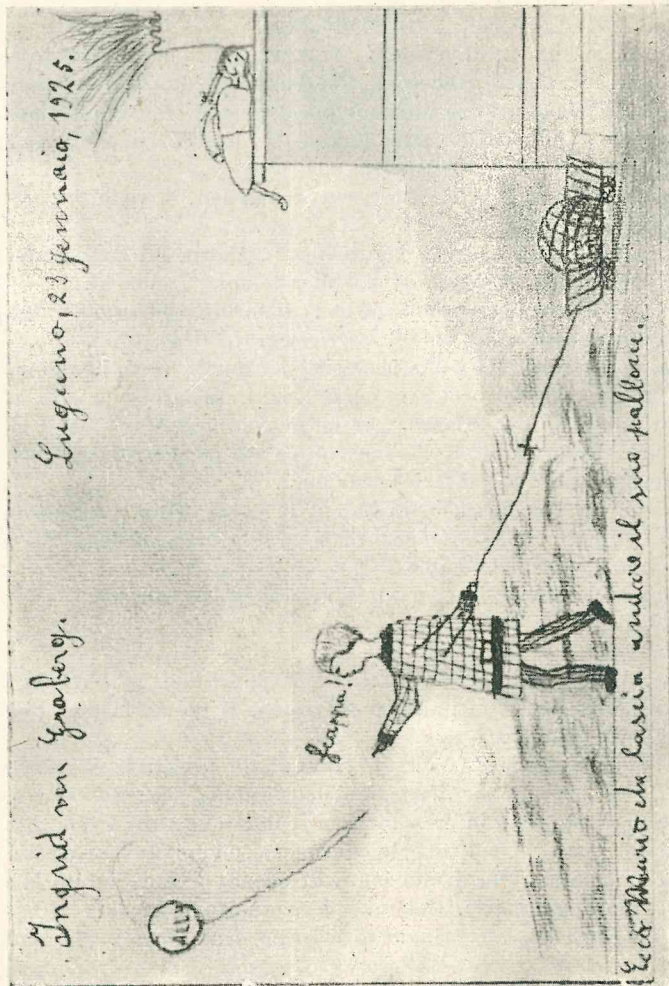 Ingrid von Graberg. Lugano, 23 gennaio, 1925.
ALLY
scappa!
Ecco Mario che lascia andare il suo pallone.